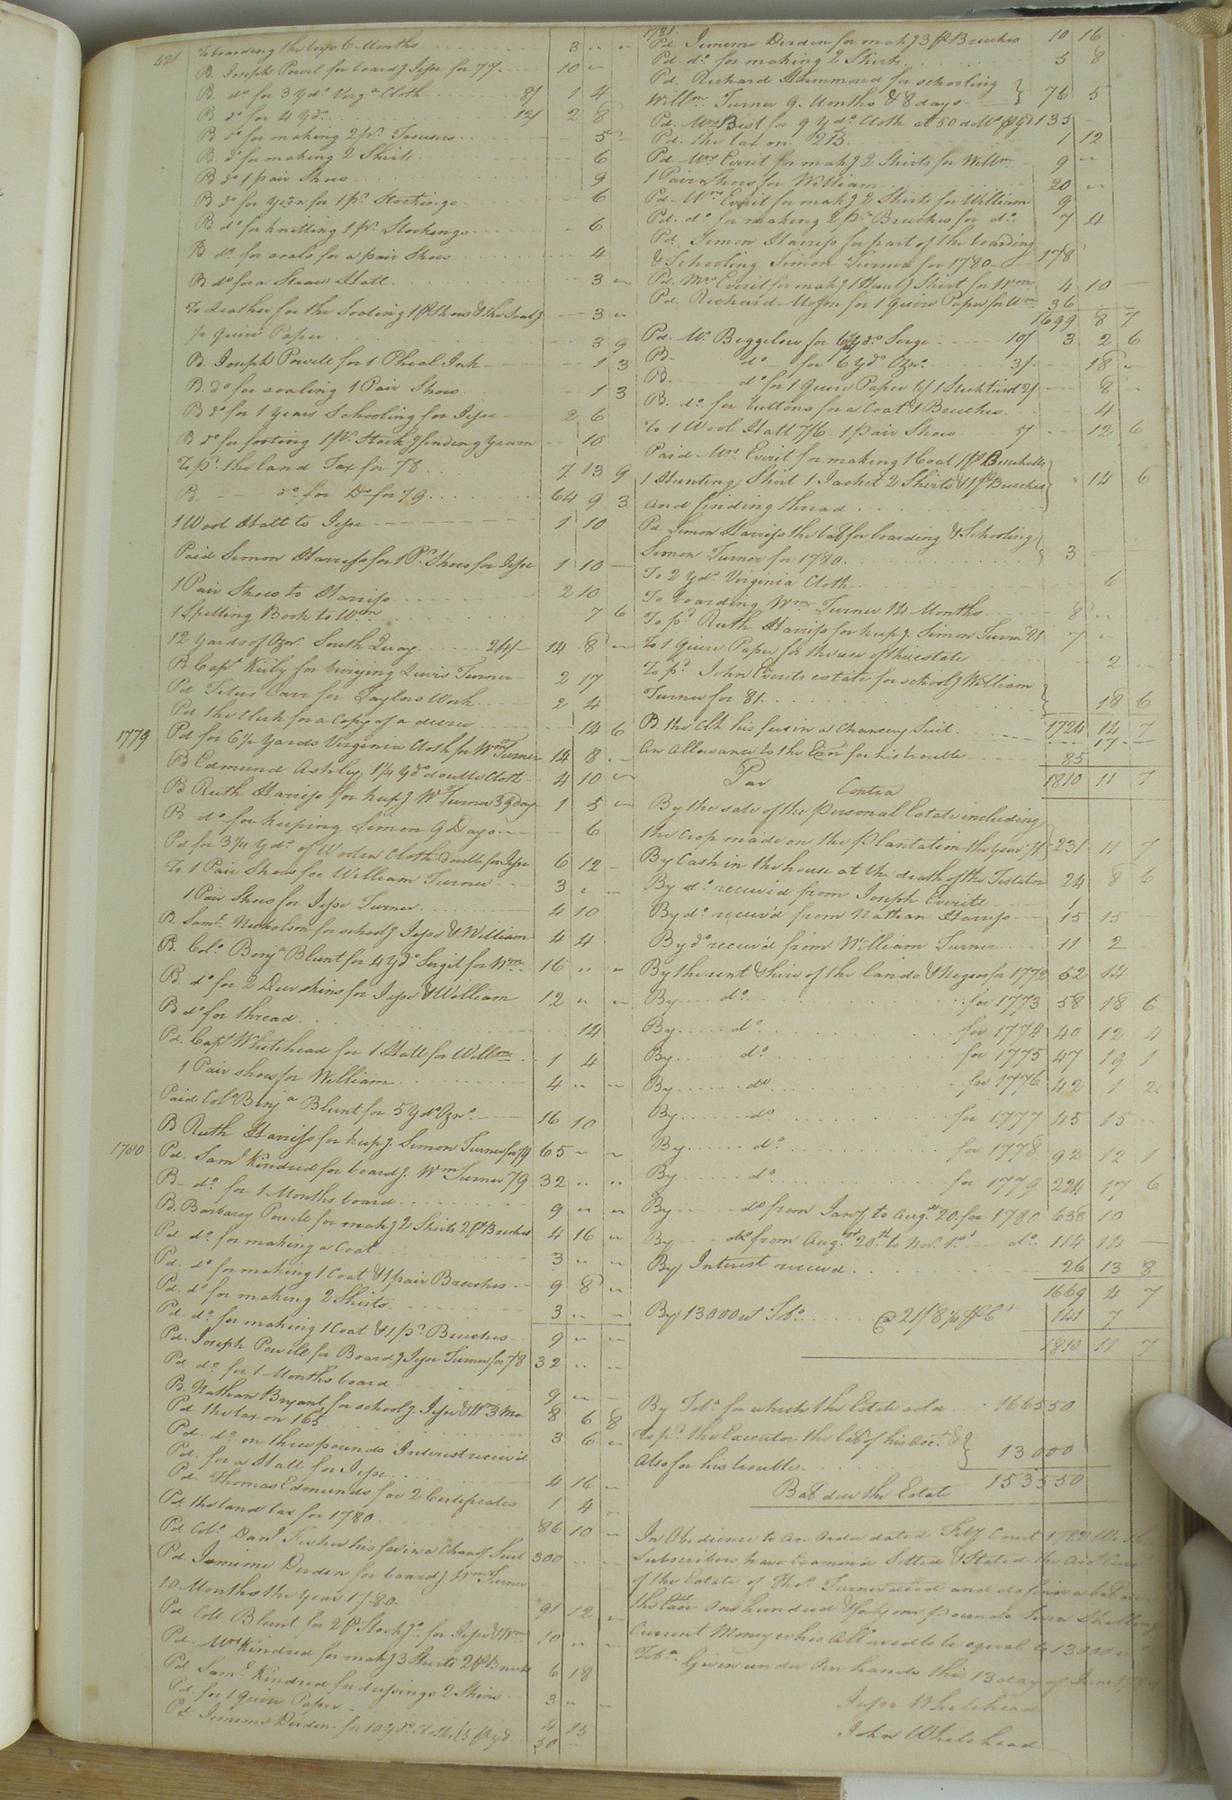 421
To boarding the boys 6 Months 3 " "
Pd Joseph Powel for board'g Jesse for 77 10 "
Pd do for 3 Yds Virga Cloth 8/ 1 4
Pd do for 4 yds 12/ 2 8
Pd do for making 2 pr Trousers 5 "
Pd do for making 2 Shirts 6
Pd do 1 pair Shoes 9
Pd do for yarn for 1 pr Stockings 6
Pd do for knitting 1 pr Stockings 6
Pd do for soals for a pair Shoes 4
Pd do for a Straw Hatt 3 "
To Leather for the Soaling 1 pr Shoes & the Soal'g 3 "
1/2 Quire Paper 3 9
Pd Joseph Powell for 1 Phial Ink 1 3
Pd do for soaling 1 Pair Shoes 1 3
Pd do for 1 years Schooling for Jesse 2 6
Pd do for footing 1 pr Stock'g & finding yearn 10
To pd the land Tax for 78 7 13 9
Pd do for Do for 79 64 9 3
1 Wool Hatt to Jesse 1 10
Paid Simon Harriss for 1 Pr Shoes for Jesse 1 10
1 Pair Shoes to Harriss 2 10
1 Spelling Book to Wm 7 6
12 Yards of Ozn. South Quay 24/ 14 8 "
Pd Capt Kirby for Lewis Turner 2 17
Pd Titus Carr for Taylors Work 2 4
Pd the Clerk for a Copy of a decree 14 6
1779 Pd for 6 1/2 Yards Virginia Cloth for Wm Turner 14 8
Pd Edmund Astley 1 1/4 Yds double Cloth 4 10 "
Pd Ruth Harriss for keep'g Wm Turner 39 Days 1 5 "
Pd do for keeping Simon 9 Days 6
Pd for 3 1/4 Yds of Woolen Cloth double for Jesse 6 12
To 1 Pair Shoes for William Turner 3 " "
1 Pair Shoes for Jesse Turner 4 10
Pd Saml Nicholson for school'g Jesse & William 4 4
Pd Colo Benja Blunt for 4 Yds for Wm 16 " "
Pd do for 2 Deer skins for Jesse & William 12 " "
Pd do for thread 14
Pd Capt Whitehead for 1 Hatt for Willm 1 4
1 Pair shoes for William 4 " "
Paid Colo Benja Blunt for 5 Yds Ozn. 16 10
Pd Ruth Harriss for keep'g Simon Turner for 79 65 " "
1780 Pd Saml Kindred for board'g Wm Turner 79 32 " "
Pd do for 1 Months board 9 " "
Pd Barbary Powell for mak'g 2 Shirts 2 pr Breeches 4 16 "
Pd do for making a Coat 3 " "
Pd do for making 1 Coat & 1 pair Breeches 9 8 "
Pd do for making 2 Shirts 3 " "
Pd do for making 1 Coat & 1 pr Breeches 9 " "
Pd Joseph Powell for Board'g Jesse Turner for 78 32 " "
Pd do for 1 Months board 9 " "
Pd Nathan Bryant for school'g Jesse & Wm 3 Mo 8 6 8
Pd the tax on 165 3 6 "
Pd do on three pounds Interest receiv'd
Pd for a Hatt for Jesse 4 16 "
Pd Thomas Edmunds for 2 Certificates 1 4
Pd the land tax for 1780 86 10 "
Pd Colo Danl Fisher his fee in a Chan'y Suit 300
Pd Jemima Dirden for board'g Wm Turner
10 Months the Year 1780 91 12 "
Pd Coll Blunt for 2 pr Stock'gs for Jesse & Wm 10 " "
Pd Mrs Kindred for mak'g 3 Shirts 2 pr Breeches 6 18
Pd Saml Kindred for dressing 2 Skins 3 "
Pd for 1 Quire Paper 4 15
Pd Jemima Dirden for 10 Yds Cloth 50
1781
Pd Jemima Dirden for mak'g 3 pr Breeches 10 16
Pd do for making 2 Shirts 5 8
Pd Richard Hammond for schooling
Willm Turner 9 Months & 8 days 76 5
Pd Wm Best for 9 Yds Cloth at 50 135
Pd the tax on 213 1 12
Pd Mrs Everit for mak'g 2 Shirts for Willm 9 "
1 Pair Shoes for William 20 "
Pd Mrs Everit for mak'g 2 Shirts for William 9
Pd do for making 2 pr Breeches for do 7 4
Pd Simon Harriss for part of the boarding
& Schooling Simon Turner for 1780 178
Pd Mrs Everit for mak'g 1 Hunt'g Shirt for Wm 4 10
Pd Richard for 1 Quire Paper for Wm 36
1699 8 7
Pd Wm Biggelow for 6 1/4 Yds Serge 10/ 3 2 6
Pd do for 6 Yds Ozn. 3/ 18 "
Pd do for 1 Quire Paper 8
Pd do for buttons for a Coat & Breeches 4
To 1 Wool Hatt 7/6 1 pair Shoes 5/ 12 6
Paid Mrs Everit for making 1 Coat 1 pr Breeches
1 Hunting Shirt 1 Jacket 2 Shirts & 1 pr Breeches 14 6
and finding thread
Pd Simon Harriss the bal for boarding & Schooling
Simon Turner for 1780 3
To 2 Yds Virginia Cloth 6
To boarding Wm Turner 14 Months 8 "
To pd Ruth Harriss for keep'g Simon Turner 81 7 "
To 1 Quire Paper for the use of the estate 2
To pd John Everits estate for school'g William
Turner for 81 18 6
Pd the Clk his fees in a Chancery Suit 1724 14 7
17
An Allowance to the Exor for his trouble 85
1810 11 7
Per Contra
By the sale of the personal Estate including
the crop made on the Plantation the year 71 231 11 7
By Cash in the house at the death of the Testator 24 8 6
By do received from Joseph Everite 1
By do receiv'd from Nathan Harriss 15 15
By do receiv'd from William Turner 11 2
By the rent & hire of the lands & Negroes for 1772 52 14
By do for 1773 58 18 6
By do for 1774 40 12 4
By do for 1775 47 19 1
By do for 1776 42 1 2
By do for 1777 45 15
By do for 1778 92 12 1
By do for 1779 224 17 6
By do from Jan'y to Augst 20 for 1780 638 10
By do from Augst 20th to Nov. 1st do 114 14
By Interest receiv'd 26 13 8
1669 4 7
By 13000 wt Tobo @ 21/8 p Ct 141 7
1810 11 7
By Tobo for which the Estate sold 166550
to pd the Executor the bal of his Acct &
Also for his trouble 13000
Bal due the Estate 153550
In Obedience to An Order dated Feb'y Court 1782 We the
Subscribers have Examin'd Setled & Stated the
of the Estate of Thos Turner decd and do find a bal
the Exor One hundred & forty one pounds Seven Shillings
Current Money which is allowed to be equal to 13000 wt
Tobo. Given under Our hands this 13 day of June
Jesse Whitehead
John Whitehead